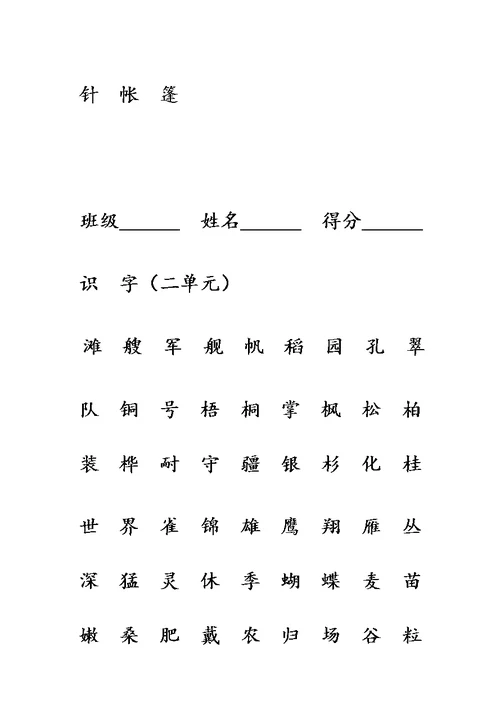 针 帐 篷
班级______ 姓名______ 得分______
识 字（二单元）
滩 艘 军 舰 帆 稻 园 孔 翠
队 铜 号 梧 桐 掌 枫 松 柏
装 桦 耐 守 疆 银 杉 化 桂
世 界 雀 锦 雄 鹰 翔 雁 丛
深 猛 灵 休 季 蝴 蝶 麦 苗
嫩 桑 肥 戴 农 归 场 谷 粒